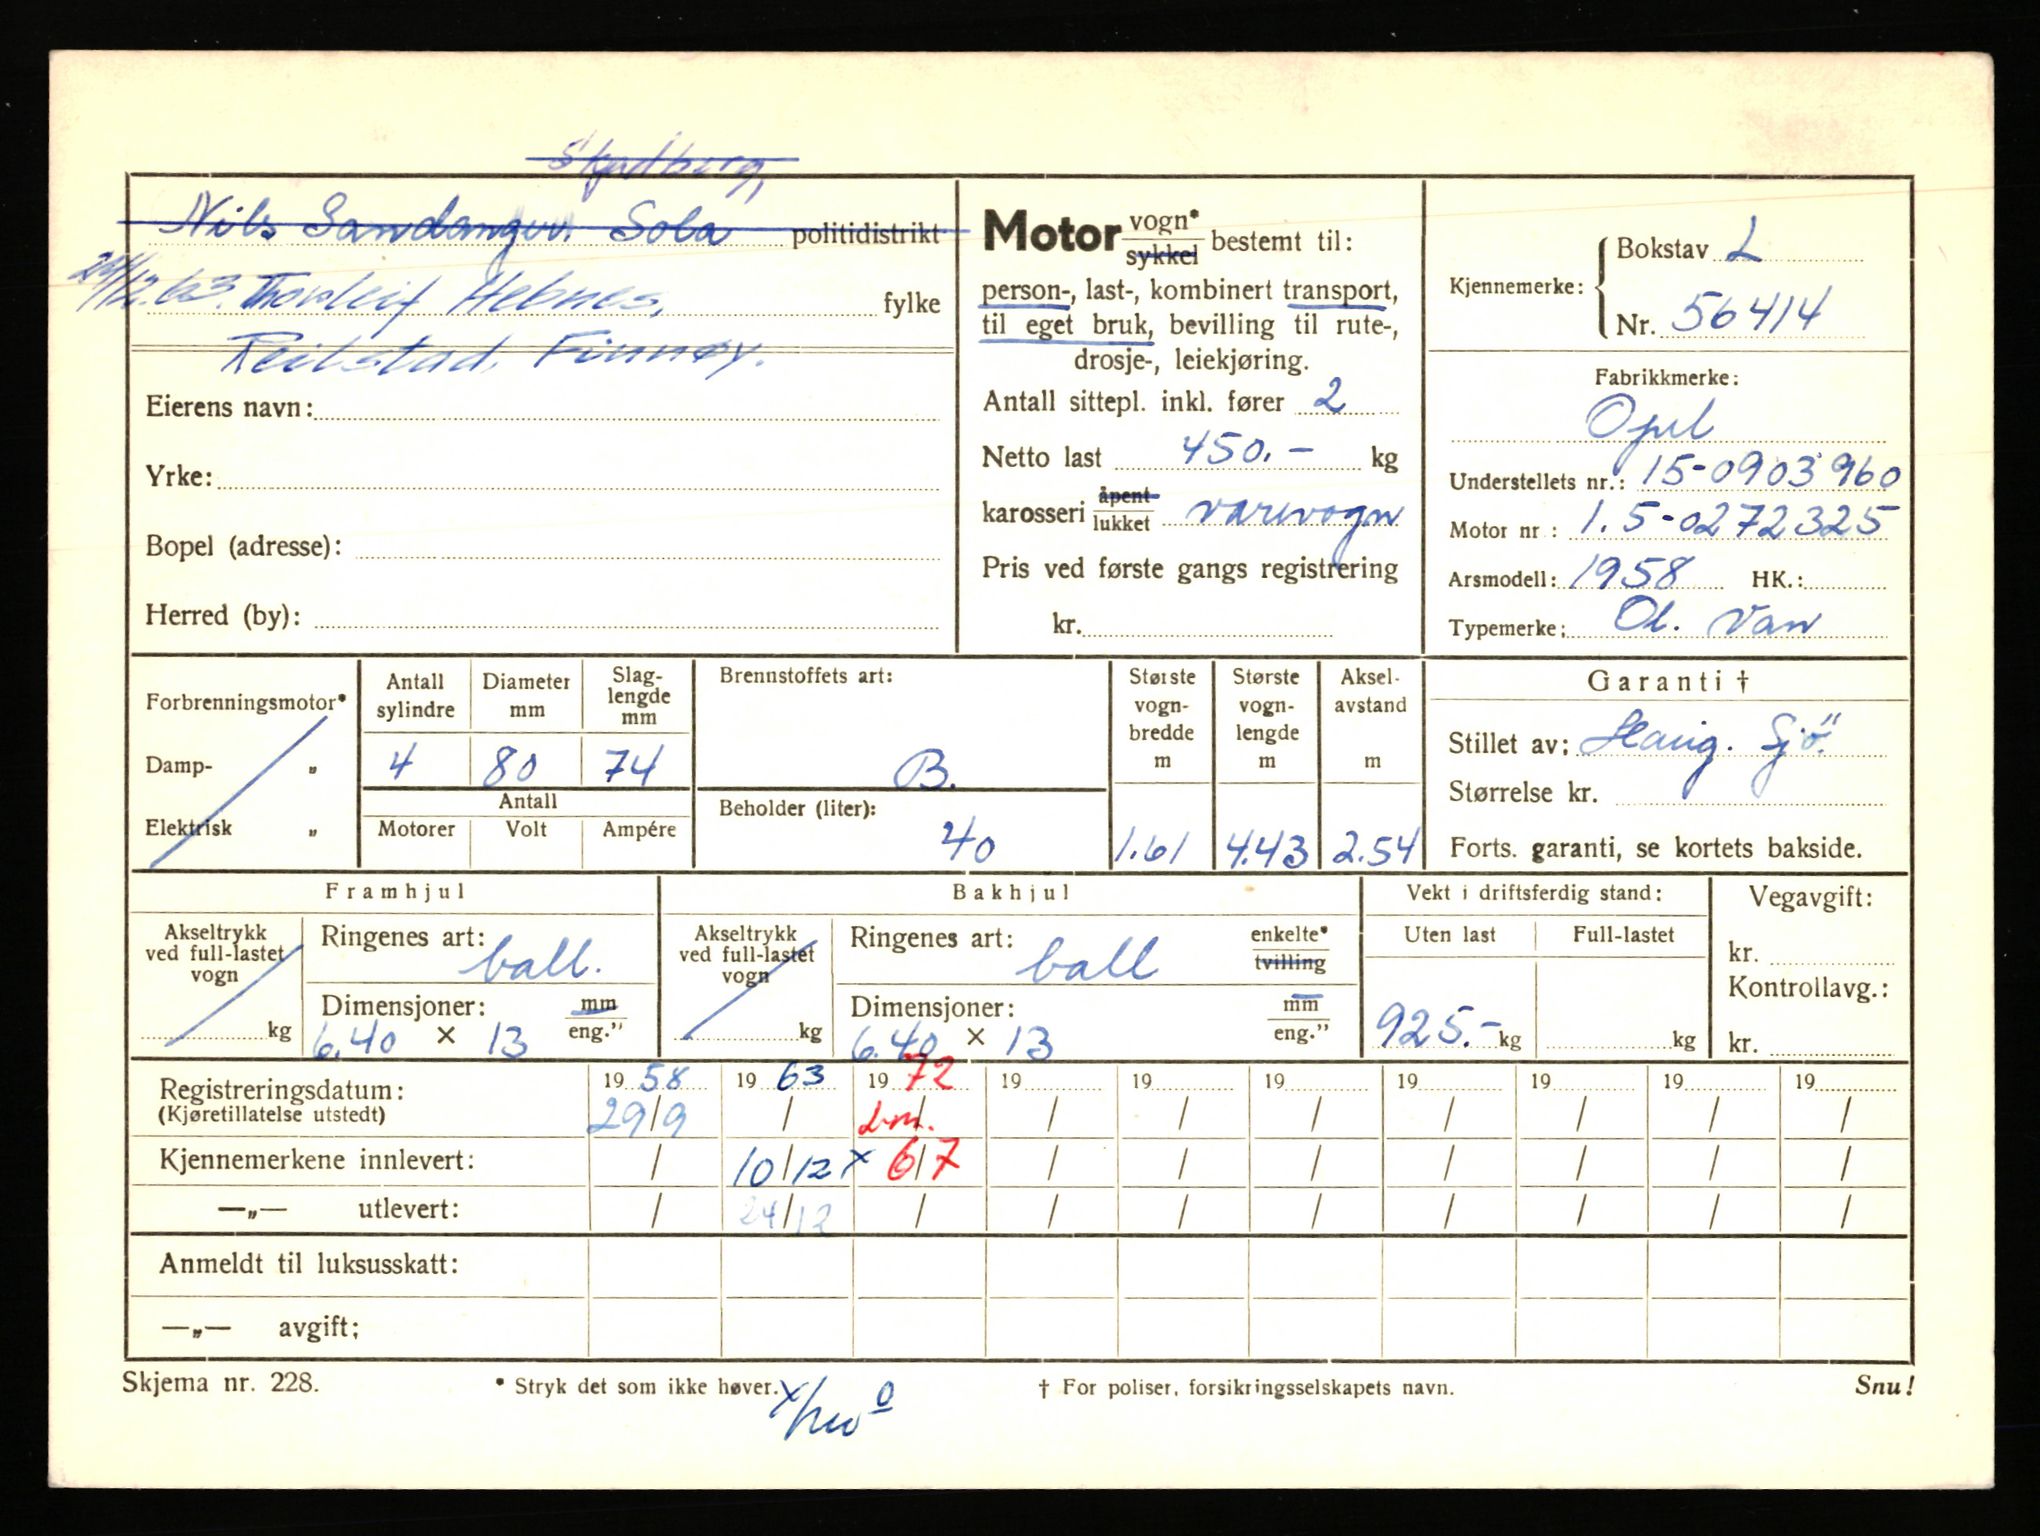 Skjalberg,
Nils Sandanger. Sola politidistrikt
24/12.63. Thorleif Hebnes, fylke
Reilstad, Finnøy.
Eierens navn:
Yrke:
Bopel (adresse):
Herred (by):
Motor vogn* sykkel bestemt til:
person-, last-, kombinert transport,
til eget bruk, bevilling til rute-,
drosje-, leiekjøring.
Antall sittepl. inkl. fører 2
Netto last 450.- kg
karosseri åpent lukket varevogn
Pris ved første gangs registrering
kr.
Kjennemerke: Bokstav L
Nr. 56414
Fabrikkmerke:
Opel
Understellets nr.: 15-0903960
Motor nr.: 1.5-0272325
Arsmodell: 1958 HK.:
Typemerke: Ol. Van
Forbrenningsmotor*
Damp- „
Elektrisk „
Antall sylindre 4
Diameter mm 80
Slaglengde mm 74
Antall
Motorer Volt Ampére
Brennstoffets art:
B.
Beholder (liter):
40
Største vogn-bredde m 1.61
Største vogn-lengde m 4.43
Aksel-avstand m 2.54
Garanti †
Stillet av: Haug. Sjö.
Størrelse kr.
Forts. garanti, se kortets bakside.
Framhjul
Akseltrykk ved full-lastet vogn kg
Ringenes art: ball.
Dimensjoner: mm eng."
6.40 × 13
Bakhjul
Akseltrykk ved full-lastet vogn kg
Ringenes art: ball enkelte* tvilling
Dimensjoner: mm eng."
6.40 × 13
Vekt i driftsferdig stand:
Uten last Full-lastet
925.- kg kg
Vegavgift:
kr.
Kontrollavg.:
kr.
Registreringsdatum: 19 58 19 63 19 72 19 19 19 19 19 19 19
(Kjøretillatelse utstedt) 29/9 / Lm. / / / / / / / /
Kjennemerkene innlevert: / 10/12 x 6/7 / / / / / / /
—„— utlevert: / 24/12 / / / / / / / /
Anmeldt til luksusskatt:
—„— avgift:
Skjema nr. 228. * Stryk det som ikke høver. † For poliser, forsikringsselskapets navn. Snu!